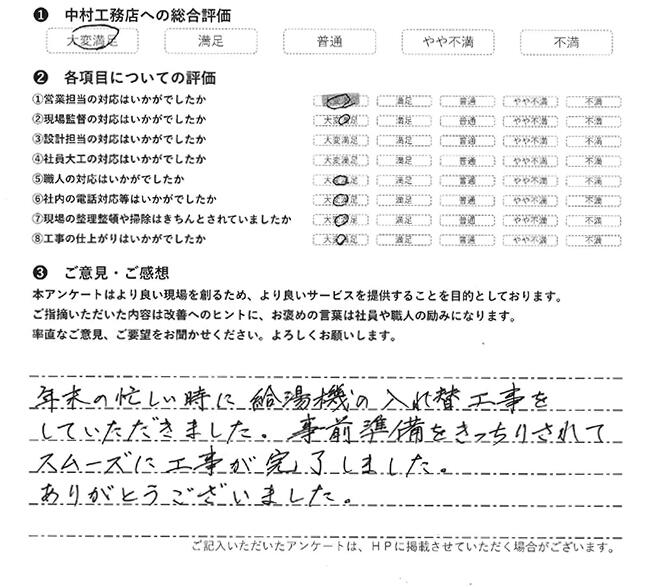 ❶ 中村工務店への総合評価
大変満足 満足 普通 やや不満 不満
❷ 各項目についての評価
①営業担当の対応はいかがでしたか 大変満足 満足 普通 やや不満 不満
②現場監督の対応はいかがでしたか 大変満足 満足 普通 やや不満 不満
③設計担当の対応はいかがでしたか 大変満足 満足 普通 やや不満 不満
④社員大工の対応はいかがでしたか 大変満足 満足 普通 やや不満 不満
⑤職人の対応はいかがでしたか 大変満足 満足 普通 やや不満 不満
⑥社内の電話対応等はいかがでしたか 大変満足 満足 普通 やや不満 不満
⑦現場の整理整頓や掃除はきちんとされていましたか 大変満足 満足 普通 やや不満 不満
⑧工事の仕上がりはいかがでしたか 大変満足 満足 普通 やや不満 不満
❸ ご意見・ご感想
本アンケートはより良い現場を創るため、より良いサービスを提供することを目的としております。
ご指摘いただいた内容は改善へのヒントに、お褒めの言葉は社員や職人の励みになります。
率直なご意見、ご要望をお聞かせください。よろしくお願いします。
年末の忙しい時に給湯機の入れ替工事を
していただきました。事前準備をきっちりされて
スムーズに工事が完了しました。
ありがとうございました。
ご記入いただいたアンケートは、HPに掲載させていただく場合がございます。